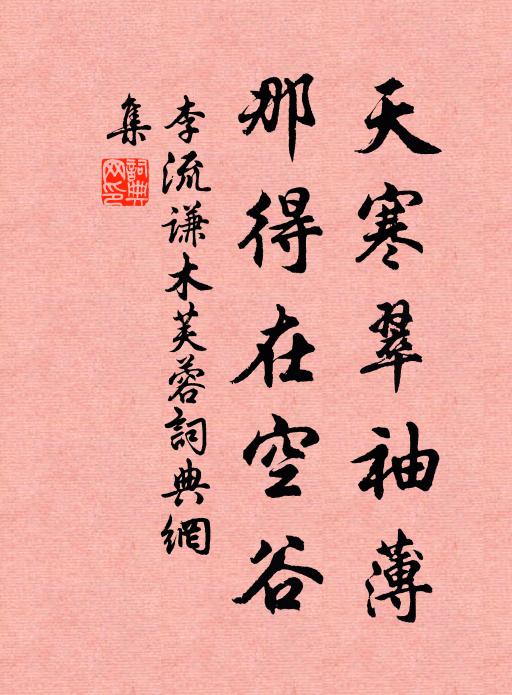 天寒翠袖薄
那得在空谷
李流谦木芙蓉詞典網
集
詞典網印